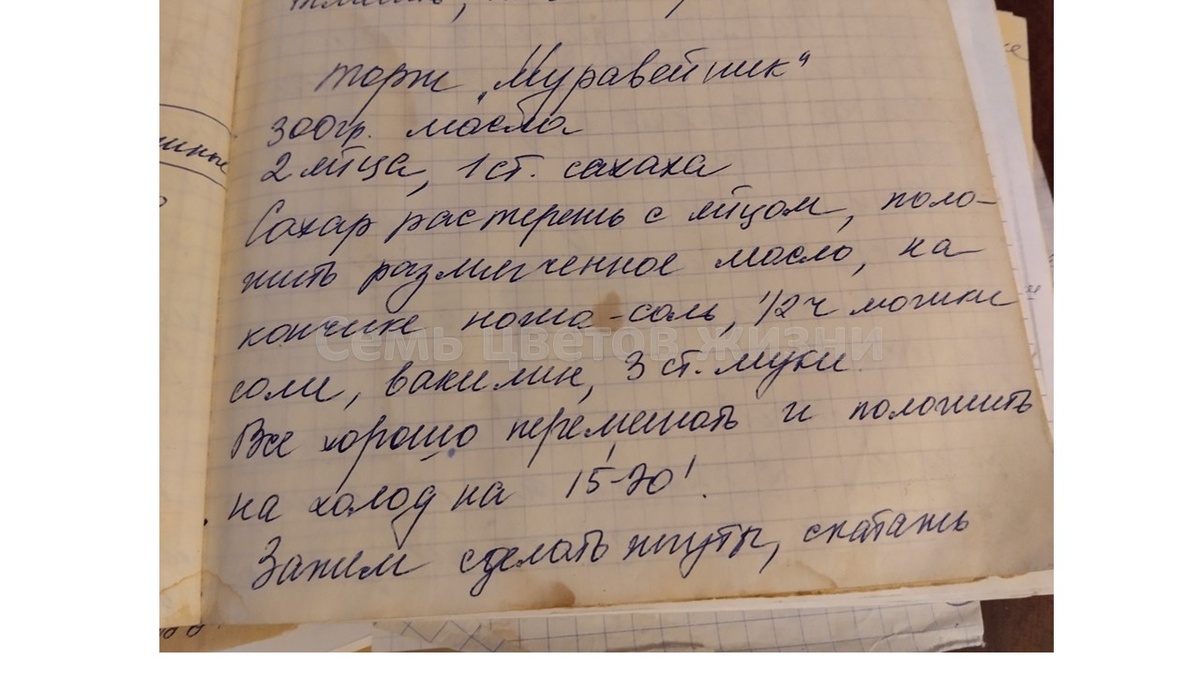 торт „Муравейник“
300гр. масла
2 яйца, 1 ст. сахаха
Сахар растереть с яйцом, поло-
жить размягченное масло, на
кончике ножа - соль, 1/2 ч ложки
Семь цветов жизни
соли, ванилин, 3 ст. муки
Все хорошо перемешать и положить
на холод на 15-30'.
Затем сделать жгуты, скатать